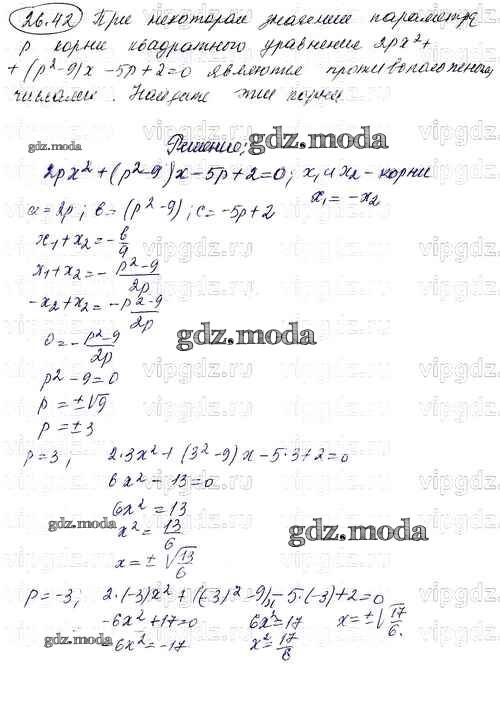 26.42 При некотором значении параметра
p корни квадратного уравнения 2px²+
+(p²-9)x-5p+2=0 являются противоположными
числами. Найдите эти корни.
Решение:
gdz.moda
gdz.moda
2px²+(p²-9)x-5p+2=0; x₁ и x₂ - корни
x₁=-x₂
a=2p; b=(p²-9); c=-5p+2
x₁+x₂=-b/a
x₁+x₂=-(p²-9)/2p
-x₂+x₂=-(p²-9)/2p
0=-(p²-9)/2p
gdz.moda
p²-9=0
p=±√9
p=±3
p=3; 2·3x²+(3²-9)x-5·3+2=0
6x²-13=0
6x²=13
gdz.moda
x²=13/6
gdz.moda
x=±√13/6
p=-3; 2·(-3)x²+((-3)²-9)x-5·(-3)+2=0
-6x²+17=0 6x²=17 x=±√17/6.
-6x²=-17 x²=17/6
gdz.moda
gdz.moda